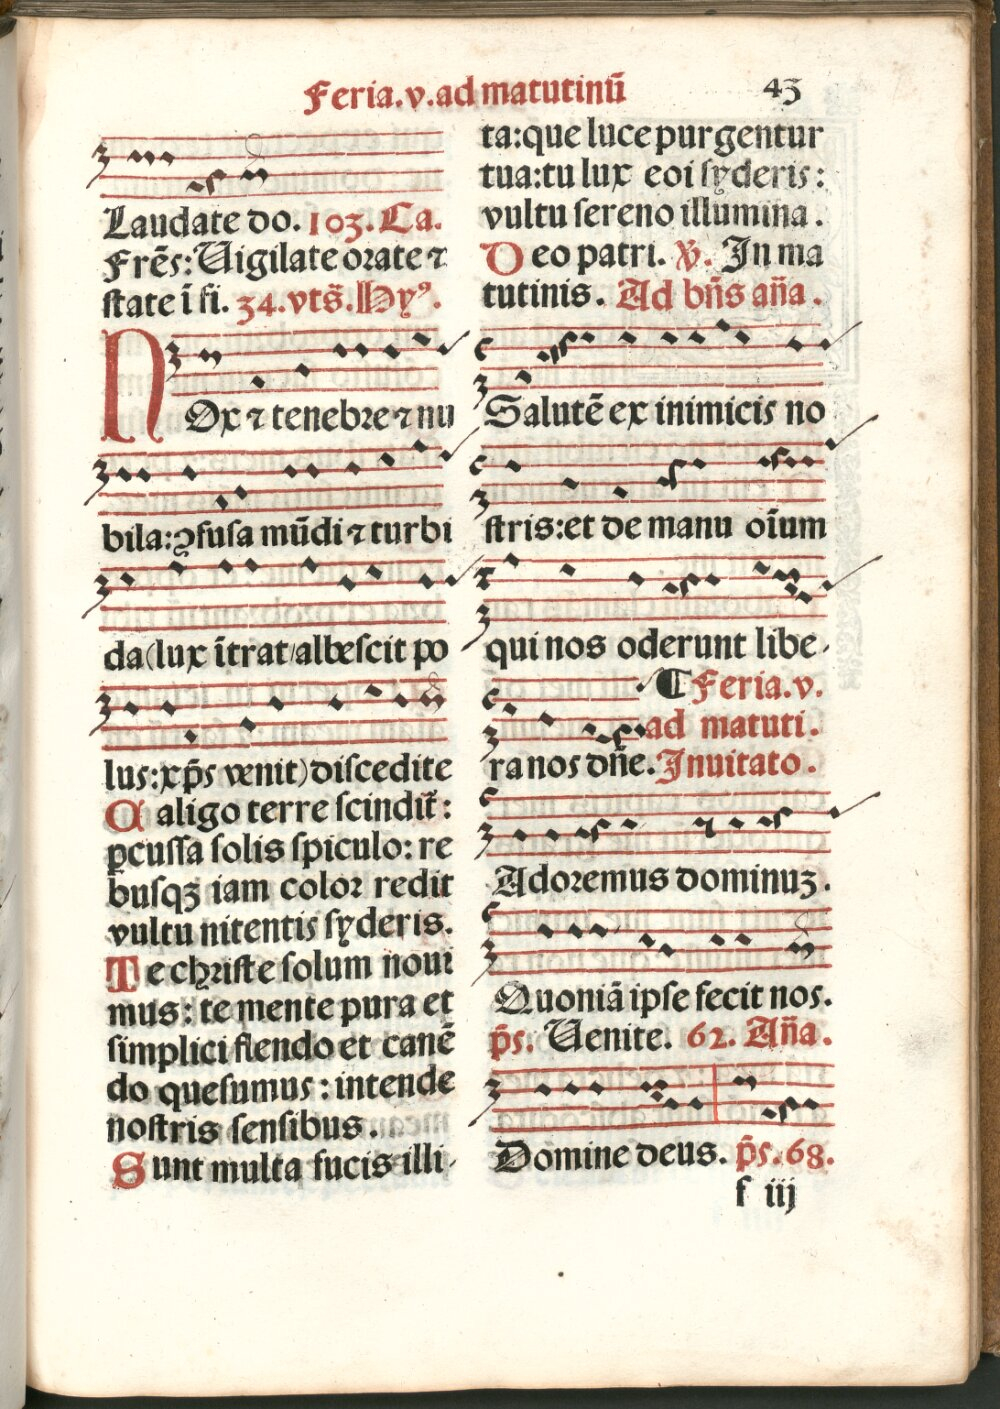 Feria.v.ad matutinū 43
Laudate do. 103. Ca.
Frēs: Uigilate orate ⁊
state ī fi. 34. vts̄. Hyꝰ.
NOx ⁊ tenebre ⁊ nu
bila: ꝯfusa mūdi ⁊ turbi
da (lux ītrat/albescit po
lus: xp̄s venit) discedite
Caligo terre scindit̄:
ꝑcussa solis spiculo: re
busqꝫ iam color redit
vultu nitentis syderis.
Te christe solum noui
mus: te mente pura et
simplici flendo et canē
do quesumus: intende
nostris sensibus.
Sunt multa fucis illi/
ta: que luce purgentur
tua: tu lux eoi syderis:
vultu sereno illumina.
Deo patri. ℣. In ma
tutinis. Ad bn̄s an̄a.
Salutē ex inimicis no
stris: et de manu oīum
qui nos oderunt libe/
¶ Feria.v.
ad matuti.
ra nos dn̄e. Inuitato.
Adoremus dominuꝫ.
Quoniā ipse fecit nos.
p̄s. Uenite. 62. An̄a.
Domine deus. p̄s. 68.
f iij